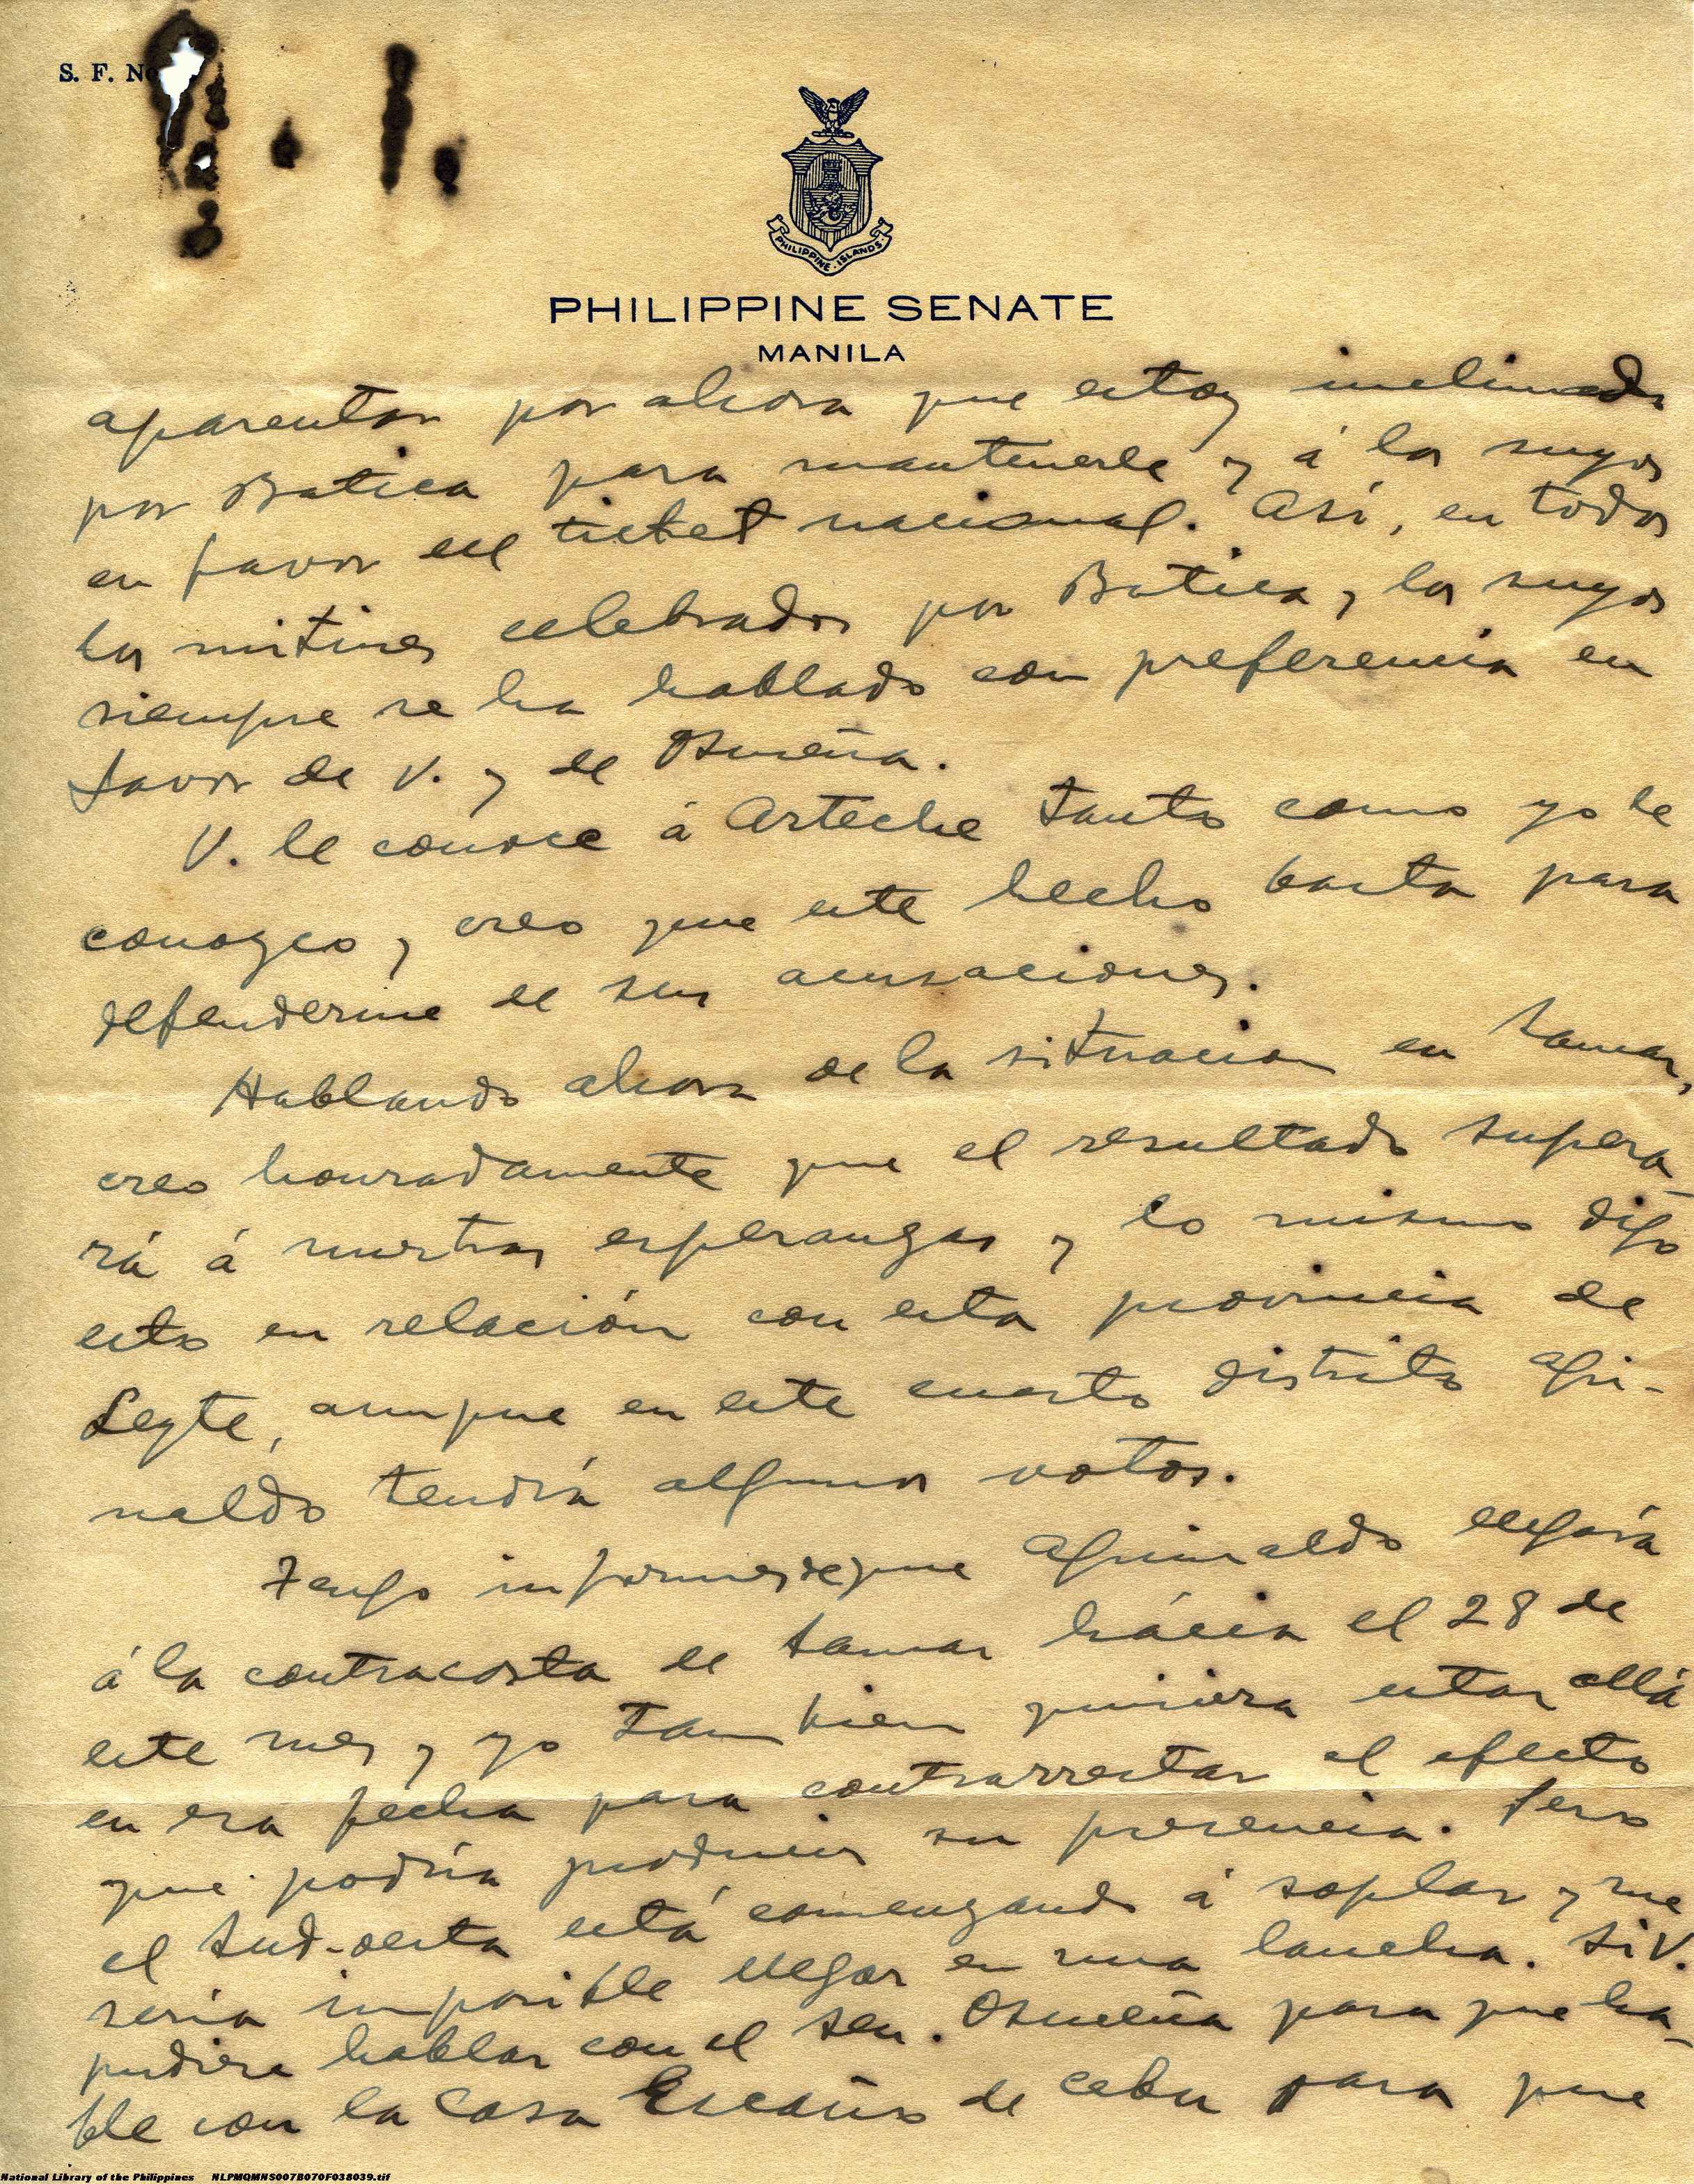 S. F. No
PHILIPPINE ISLANDS
PHILIPPINE SENATE
MANILA
aparentar por ahora que estoy inclinado
por Batica para mantenerle y á los suyos
en favor del ticket nacional. Así, en todos
los mitines celebrados por Batica y los suyos
siempre se ha hablado con preferencia en
favor de V. y de Osmeña.
V. le conoce á Arteche tanto como yo le
conozco y creo que este hecho basta para
defenderme de sus acusaciones.
Hablando ahora de la situacion en Samar,
creo honradamente que el resultado supera
rá á nuestras esperanzas y lo mismo digo
esto en relación con esta provincia de
Leyte, aunque en este cuarto distrito Agui-
naldo tendrá algunos votos.
Tengo informes de que Aguinaldo llegará
á la contracosta de Samar hácia el 28 de
este mes y yo tambien quisiera estar allá
en esa fecha para contrarrestar el efecto
que podría producir su presencia. Pero
el sud-oeste está comenzando á soplar y me
seria imposible llegar en una lancha. Si V.
pudiera hablar con el Sen. Osmeña para que ha-
ble con la Casa Escaño de Cebu para que
National Library of the Philippines NLPMQMNS007B070F038039.tif